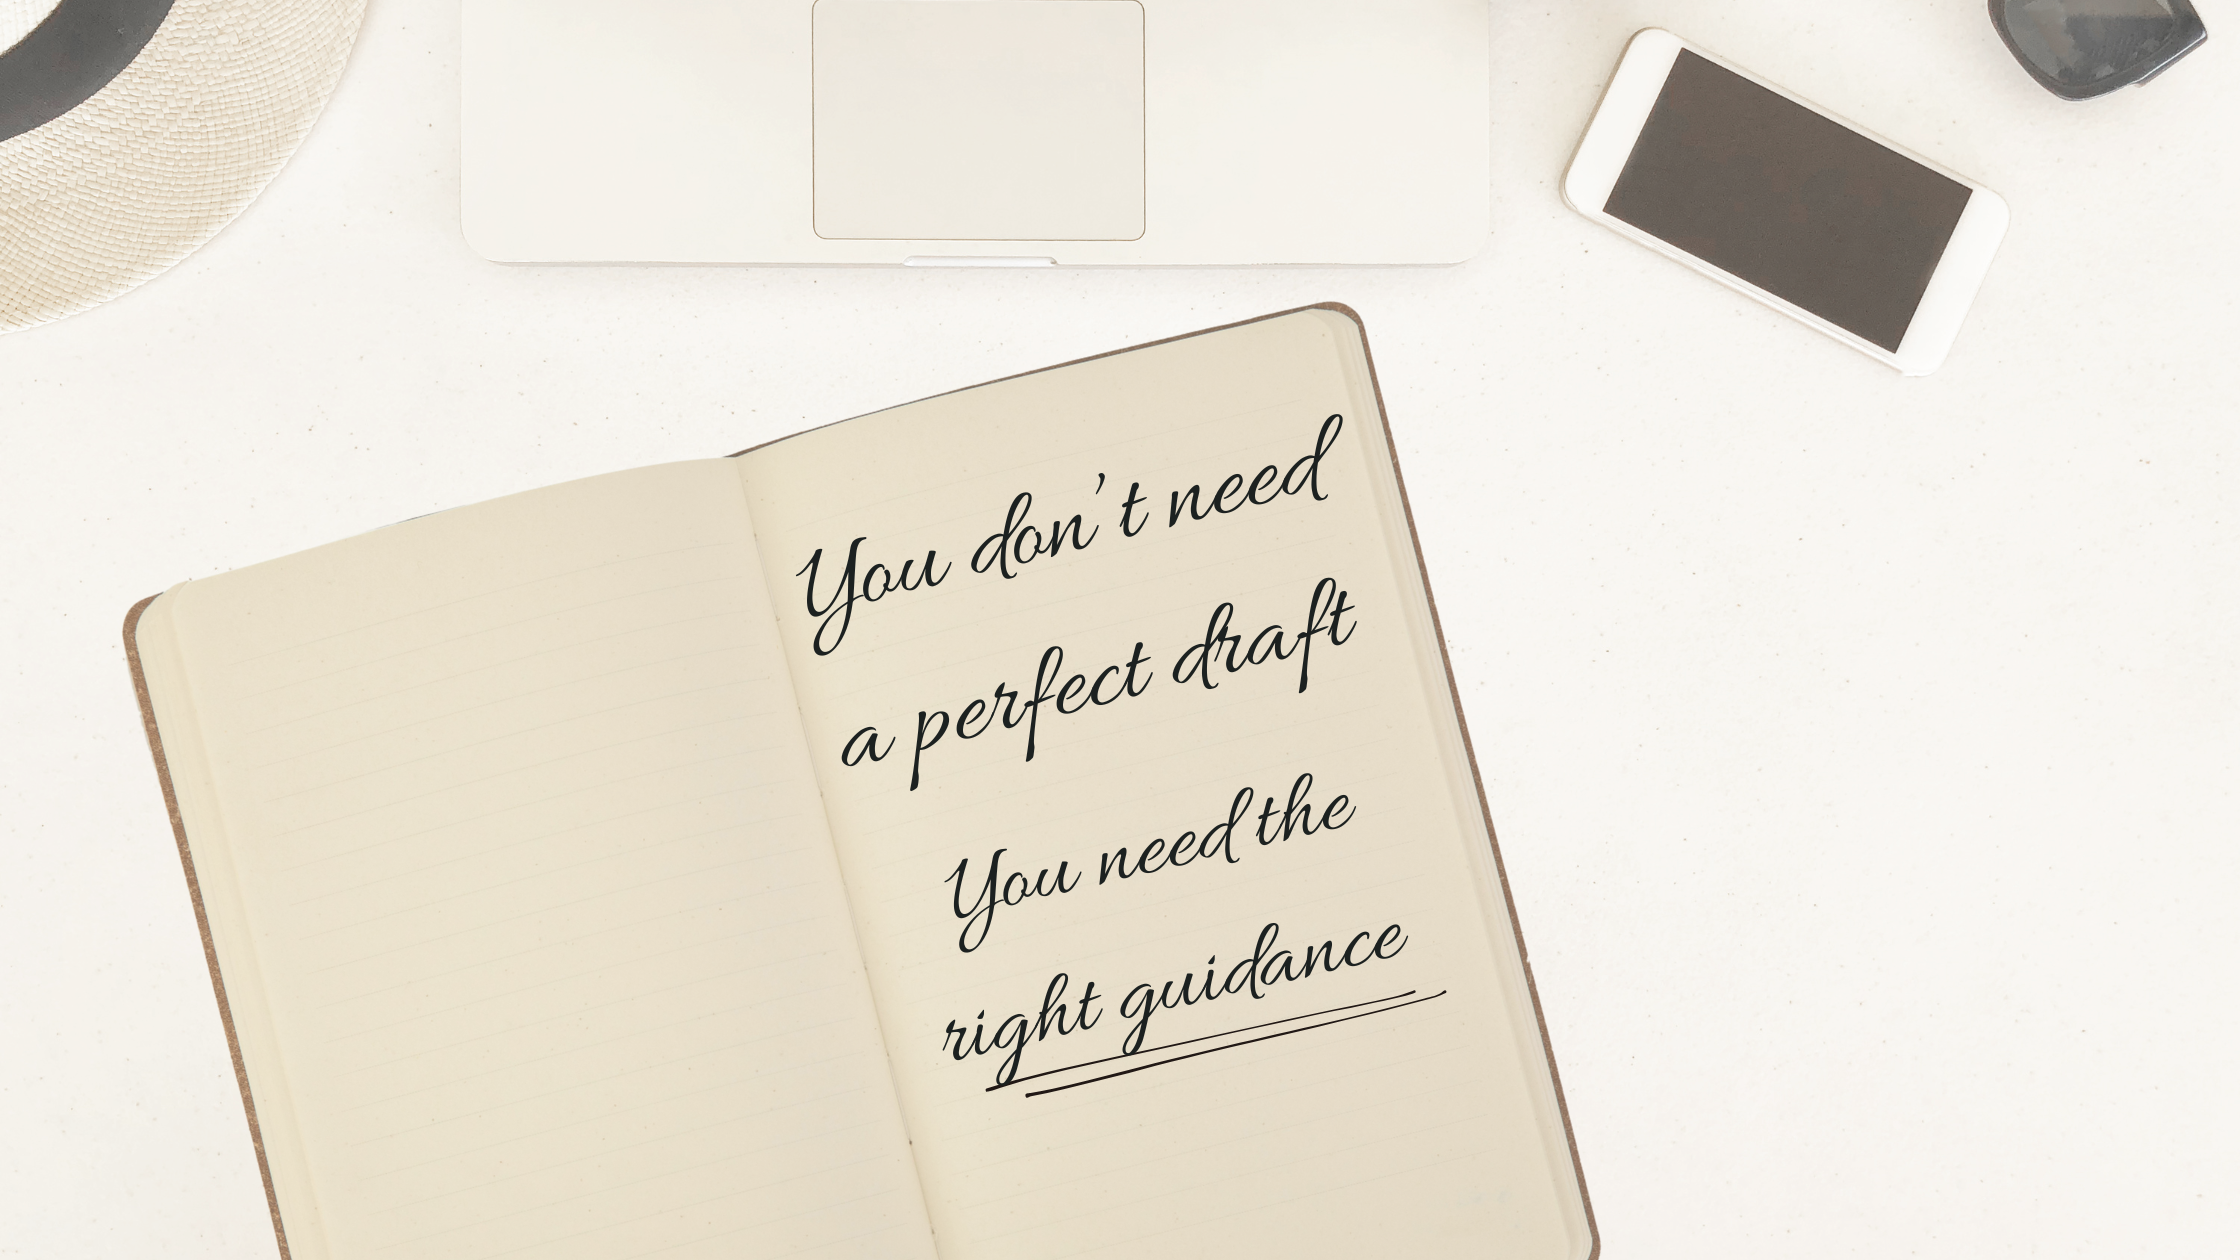 You don't need
a perfect draft
You need the
right guidance